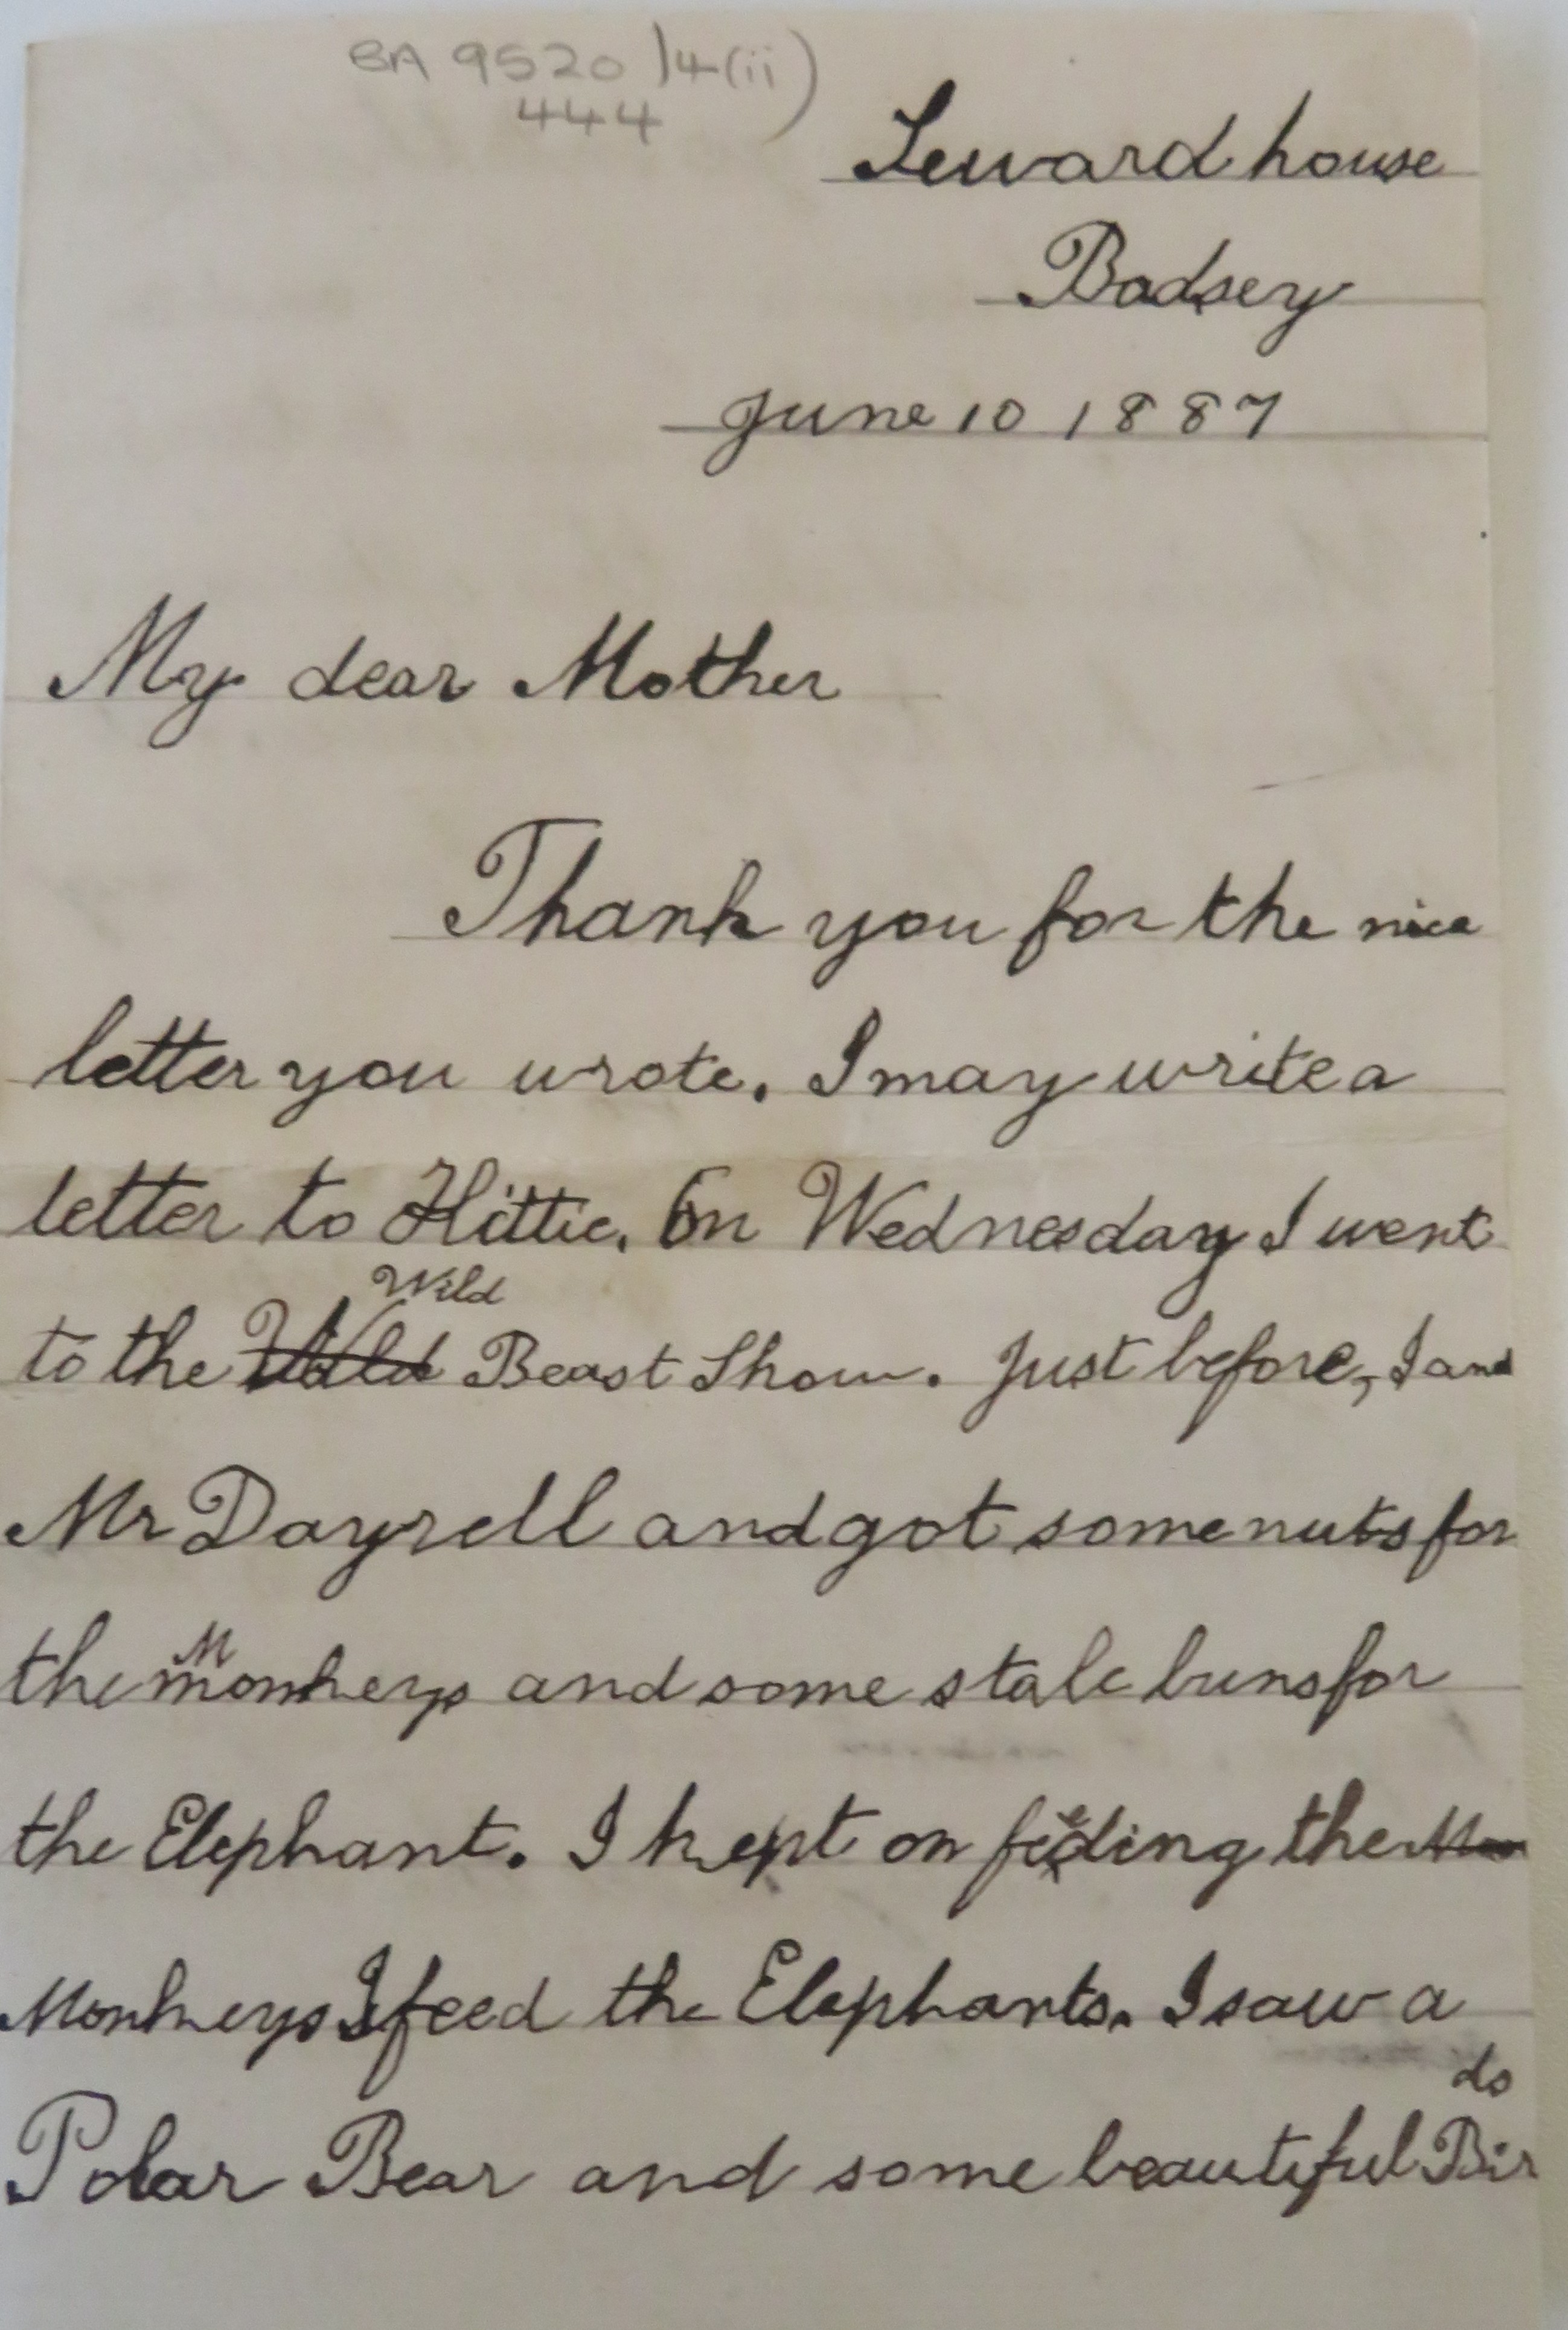 BA 9520/4(ii)
444
Seward house
Badsey
June 10 1887
My dear Mother
Thank you for the nice
letter you wrote. I may write a
letter to Kittie. On Wednesday I went
Wild
to the Wild Beast Show. Just before, I and
Mr Dayrell and got some nuts for
M
the monkeys and some stale buns for
the Elephant. I kept on feding the Mon
Monkeys I feed the Elephants. I saw a
ds
Polar Bear and some beautiful Bir